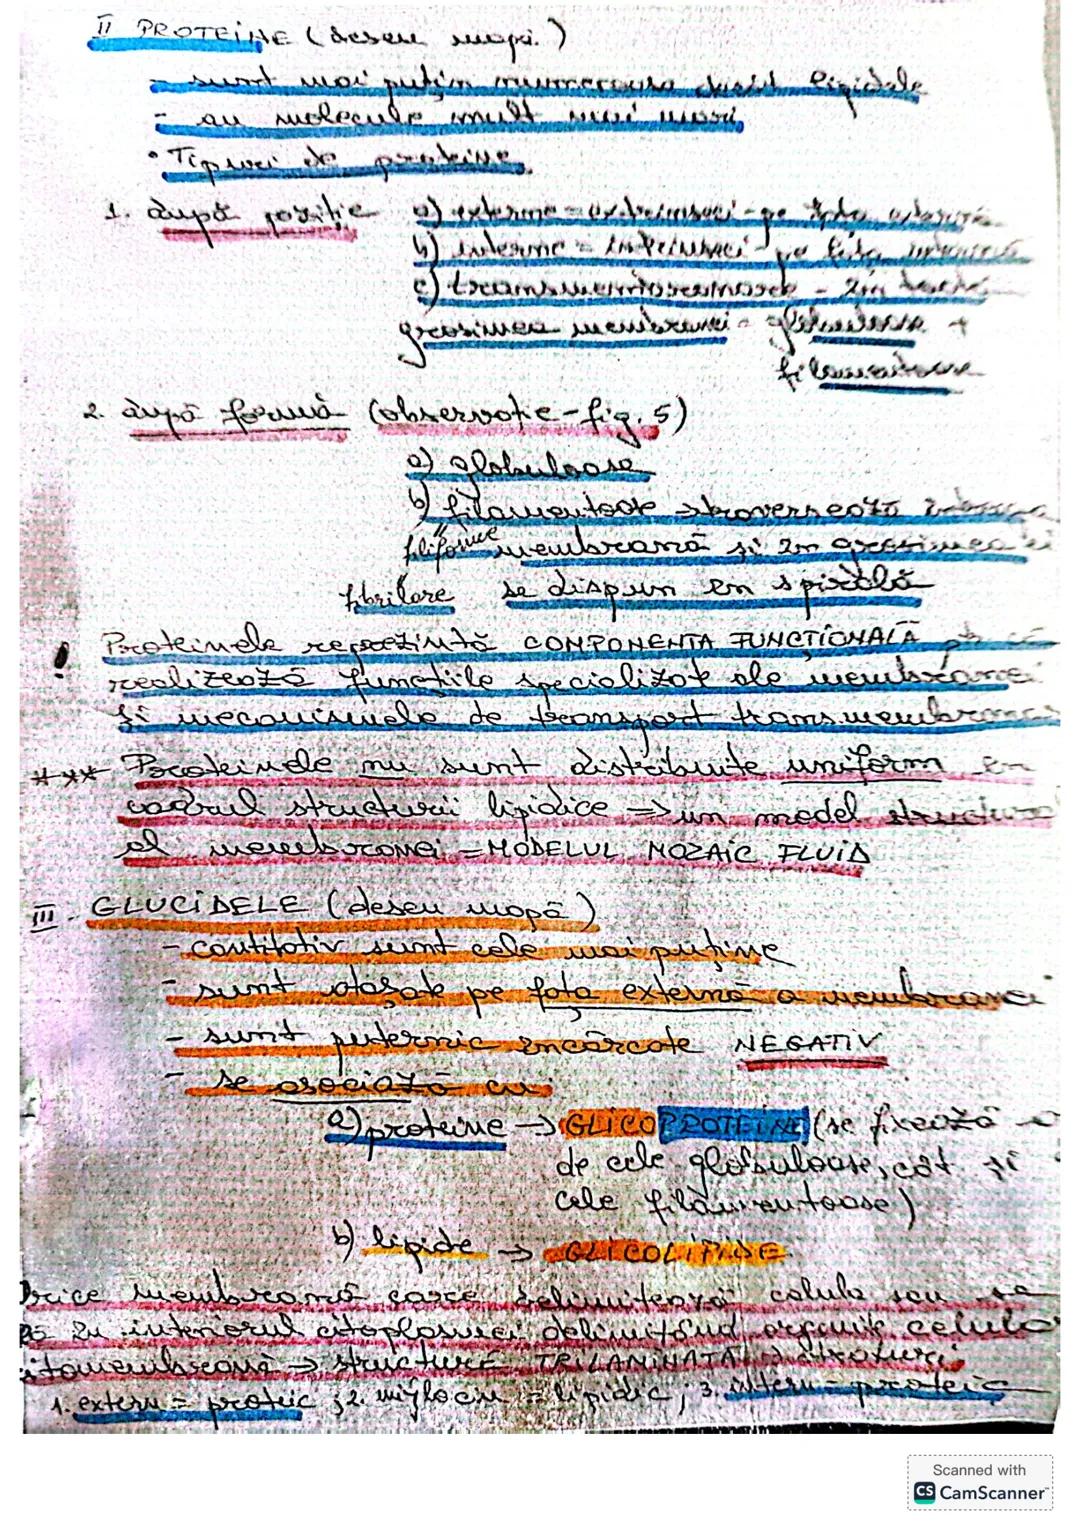 II PROTEINE (desen mapă)
- sunt mai puțin numeroase decât lipidele
- au molecule mult mai mari
• Tipuri de proteine
1. după poziție a) externe = extrinseci - pe fața externă
b) interne = intrinseci - pe fața internă
c) transmembranare - în toată
grosimea membranei = globuloase +
filamentoase
2. după formă (observație - fig. 5)
a) globuloase
b) filamentoase străversează întreaga
filiforme membrană și în grosimea ei
fibrilare se dispun în spirală
! Proteinele reprezintă COMPONENTA FUNCȚIONALĂ
realizează funcțiile specializate ale membranei
și mecanismele de transport transmembranar
*** Proteinele nu sunt distribuite uniform în
cadrul structurii lipidice => un model structural
al membranei = MODELUL MOZAIC FLUID
III. GLUCIDELE (desen mapă)
- cantitativ sunt cele mai puține
- sunt atașate pe fața externă a membranei
- sunt puternic încărcate NEGATIV
- se asociază cu
a) proteine → GLICOPROTEINE (se fixează
de cele globuloase, cât și
cele filamentoase)
b) lipide → GLICOLIPIDE
Orice membrană care delimitează celula sau se
în interiorul citoplasmei delimitând organite celula
citomembrană → structură TRILAMINATĂ
1. extern = proteic ; 2. mijlociu = lipidic ; 3. intern = proteic
Scanned with
CS CamScanner